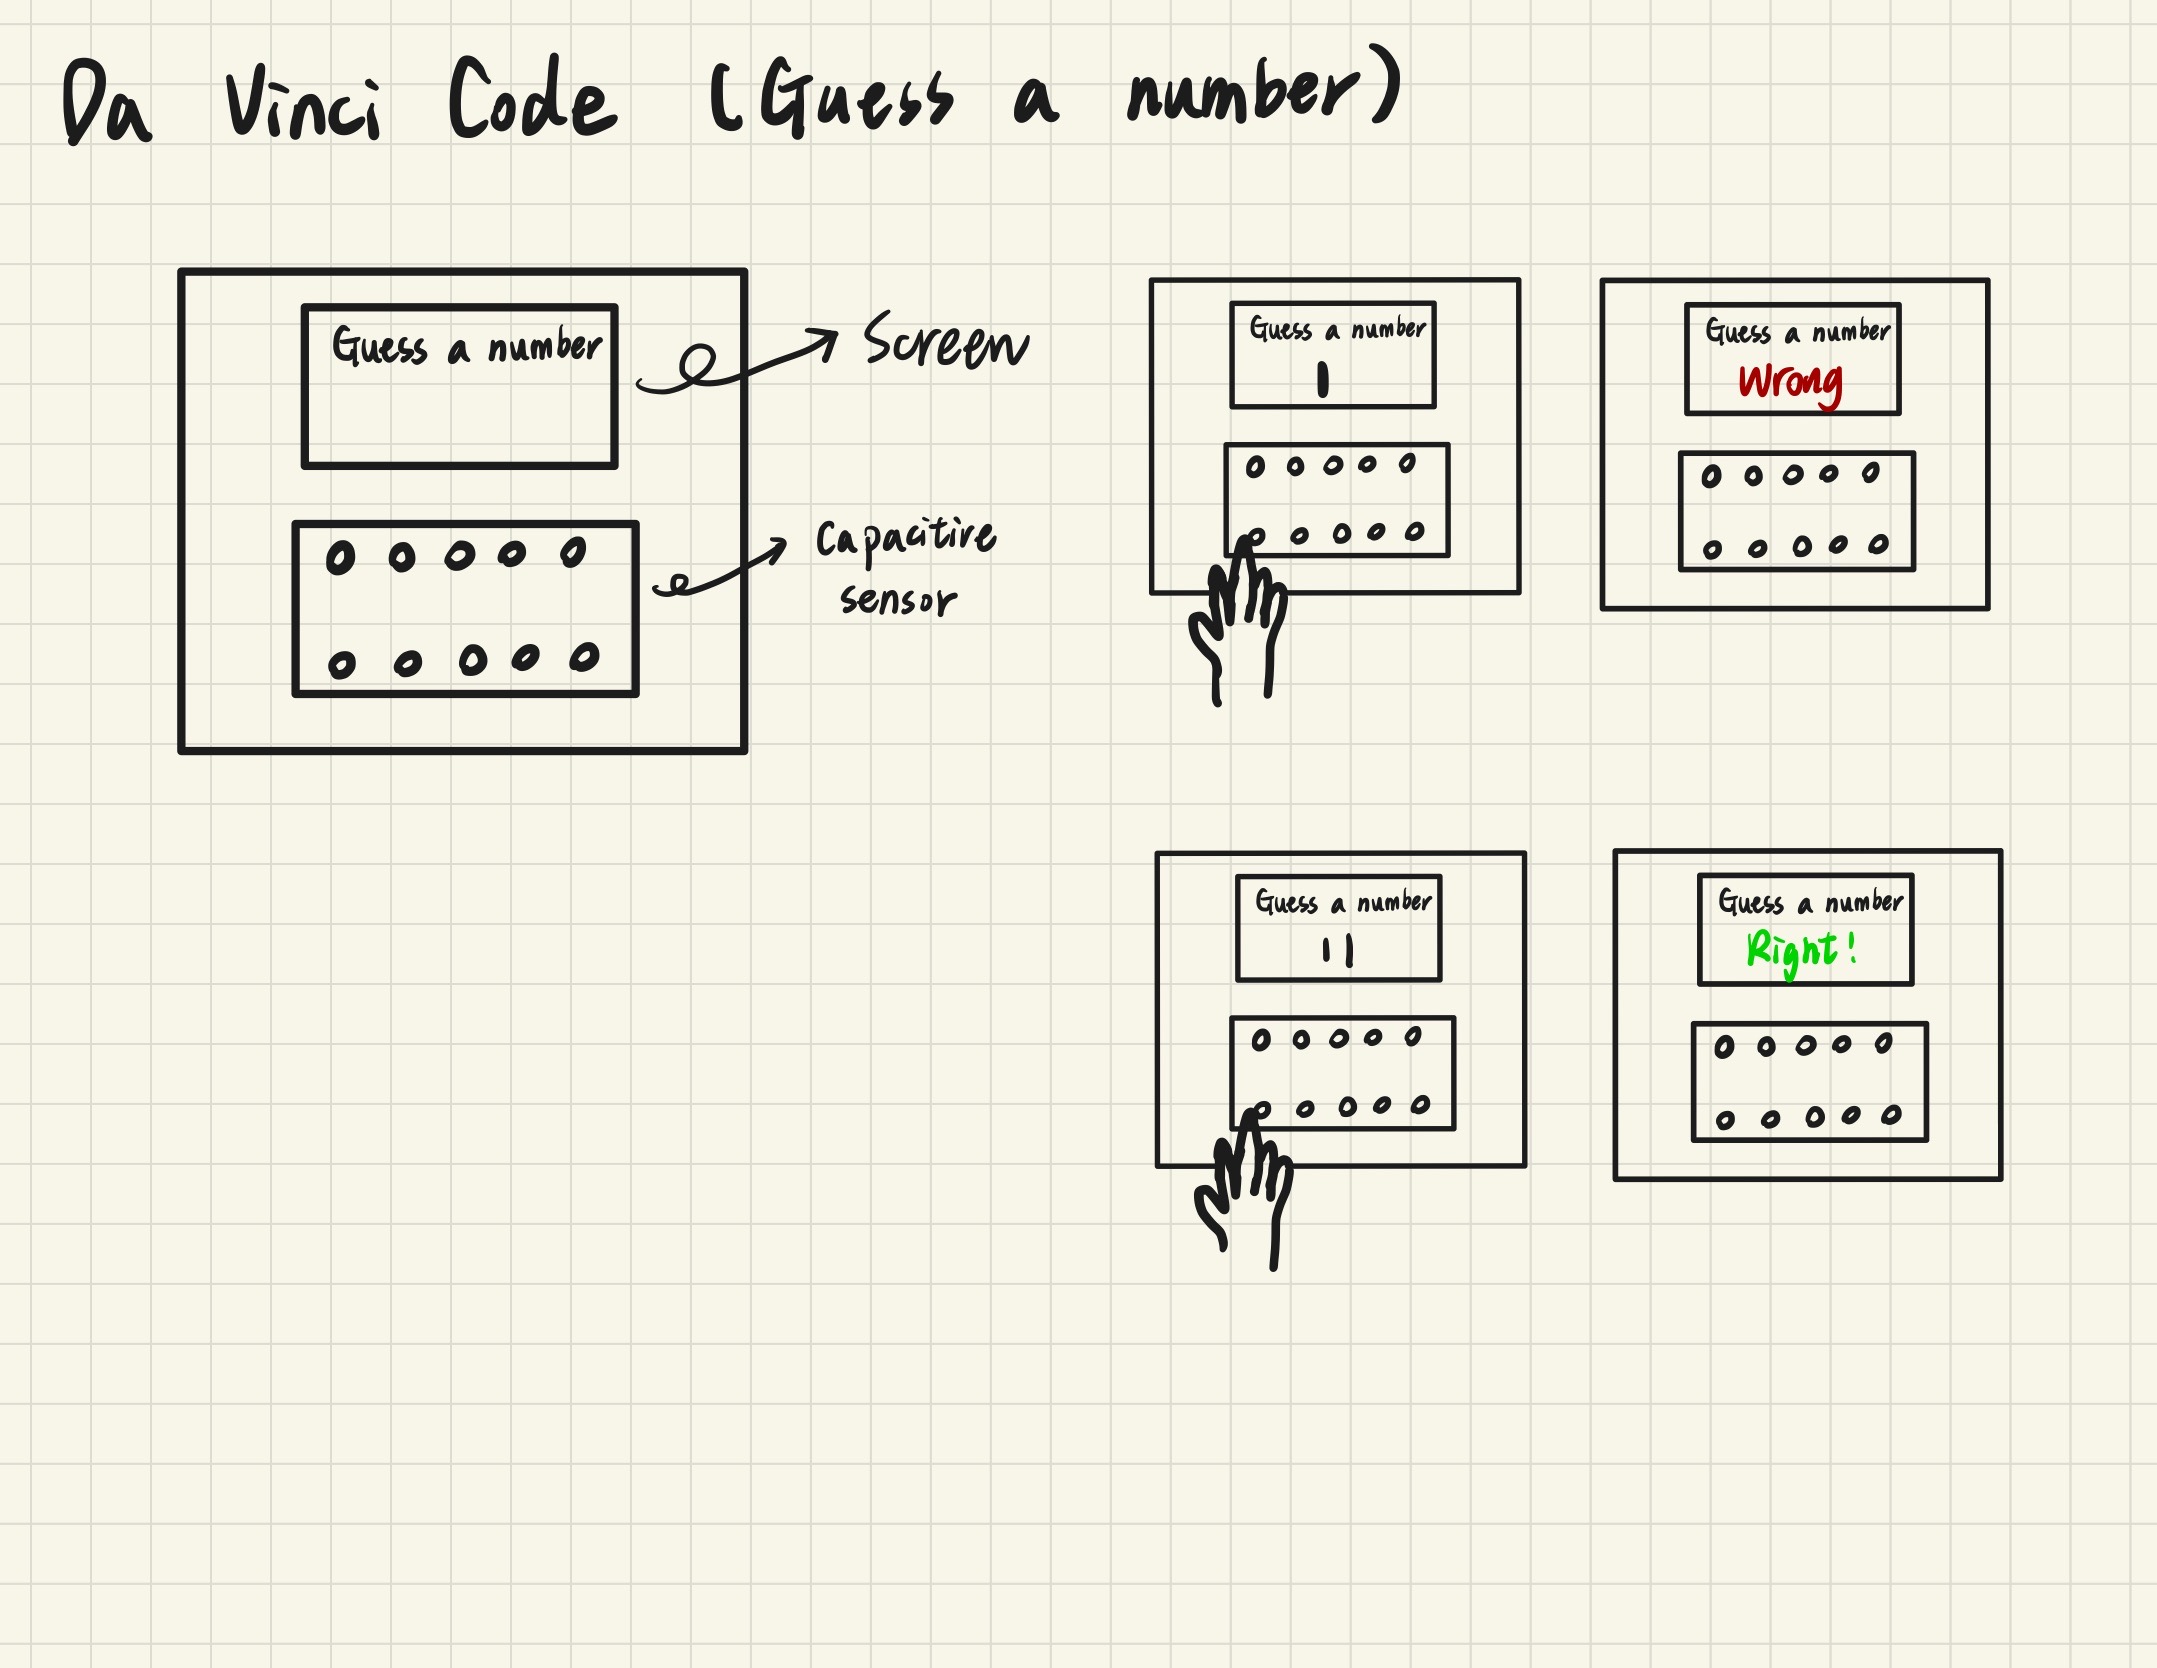 Da Vinci Code (Guess a number)
Guess a number
Screen
Capacitive
sensor
Guess a number
1
Guess a number
Wrong
Guess a number
11
Guess a number
Right!